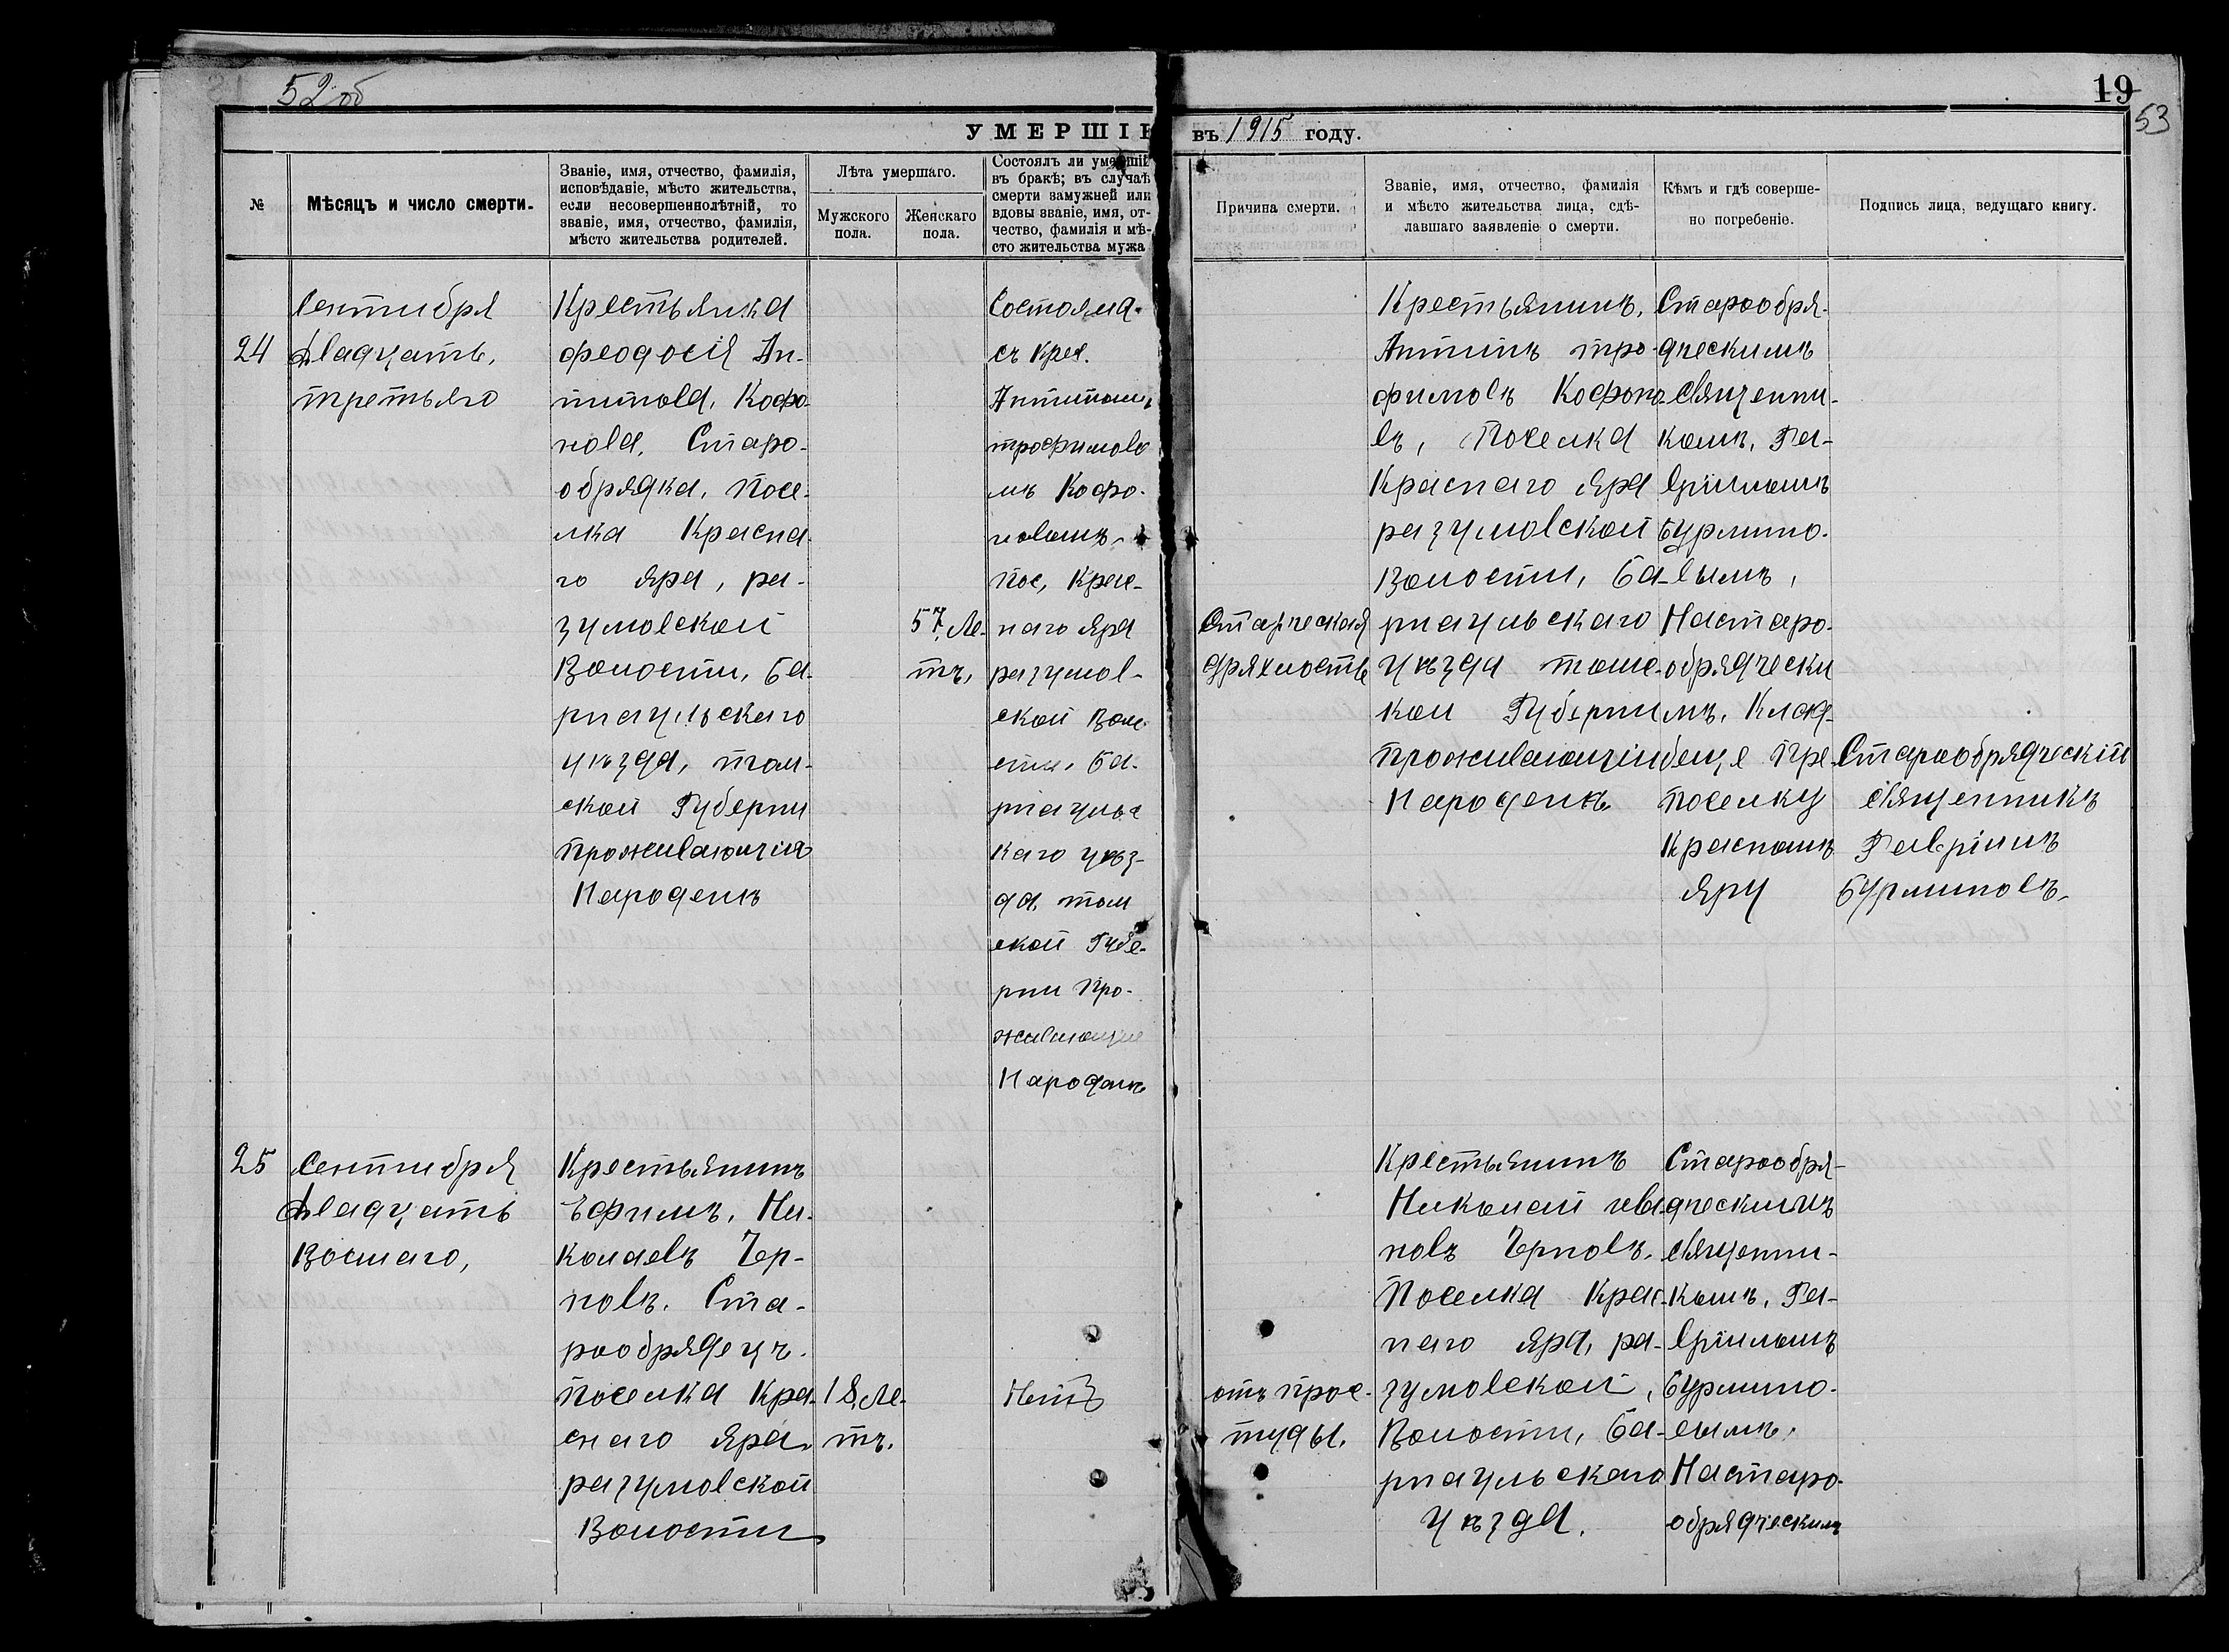 52 об
19
53
УМЕРШІЕ
въ 1915 году.
№
Мѣсяцъ и число смерти.
Званіе, имя, отчество, фамилія,
исповѣданіе, мѣсто жительства,
если несовершеннолѣтній, то
званіе, имя, отчество, фамилія,
мѣсто жительства родителей.
Лѣта умершаго.
Мужского
пола.
Женскаго
пола.
Состоялъ ли умершій
въ бракѣ; въ случаѣ
смерти замужней или
вдовы званіе, имя, от-
чество, фамилія и мѣ-
сто жительства мужа
Причина смерти.
Званіе, имя, отчество, фамилія
и мѣсто жительства лица, сдѣ-
лавшаго заявленіе о смерти.
Кѣмъ и гдѣ соверше-
но погребеніе.
Подпись лица, ведущаго книгу.
24
Сентибря
Двадцать,
третьяго
Крестьянка
феодосія Ан-
типова, Кофо-
нова, Старо-
обрядка, Посе-
лка Красна-
го Яра, ра-
зумовской
Волости, Ба-
рнаульскаго
уѣзда, том-
ской Губерни
Проживающия
На родепѣ
57, Ле-
тъ,
Состояла.
съ Крес.
Антипом,
трофимово
мъ Кофо-
новомъ,
Пос, Крас-
наго Яра
разумов-
ской Воло
сти, Ба-
рнаульс
каго уѣз-
да том
ской Губе-
рни Про-
живающие
На родепѣ
Старческая
дряхлость
Крестьянинъ,
Антипъ тро-
фимовъ Кофоно-
въ, Поселка
Краснаго Яра
разумовской
Волости, Ба-
рнаульскаго
уѣзда томс-
кои Губерни
Проживающій
На родепѣ
Старообря-
дческимъ
Священни-
комъ, Га-
вріиломъ
Бурмино-
вымъ,
На старо-
обрядчески
мъ, Клад-
беще Пре
Поселку
Красномъ
Яру
Старообрядческій
священникъ
Гавріилъ
Бурминовъ,
25
Сентибря
Двадцать
Восмаго,
Крестьянинъ
Ефимъ, Ни-
колаевъ Чер-
новъ, Ста-
рообрядецъ.
Поселка Кра-
снаго Яра,
разумовской
Волости
18, Ле-
тъ.
Нетъ
отъ прос-
туды.
Крестьянинъ
Николай ива-
новъ Черновъ,
Поселка Крас-
наго Яра, ра-
зумовской,
Волости, Ба-
рнаульскаго
уѣзда,
Старообря-
дческимъ
Священни-
комъ, Га-
вріиломъ
Бурмино-
вымъ,
На старо-
обрядческимъ